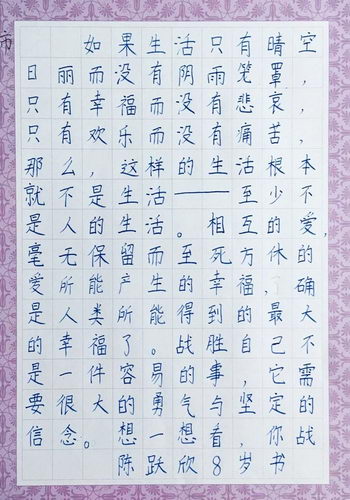 市
如果生活只有晴空
日丽而没有阴雨笼罩，
只有幸福而没有悲哀，
只有欢乐而没有痛苦，
那么，这样的生活根本
就不是生活——至少不
是人的生活。相互的爱，
毫无保留而至死方休的
爱所能产生的幸福，的确
是人类所能得到的最大
的幸福了。战胜自己不
是一件容易的事，它需
要很大的勇气与坚定的
信念。想一想看，你战
陈跃欣8岁书